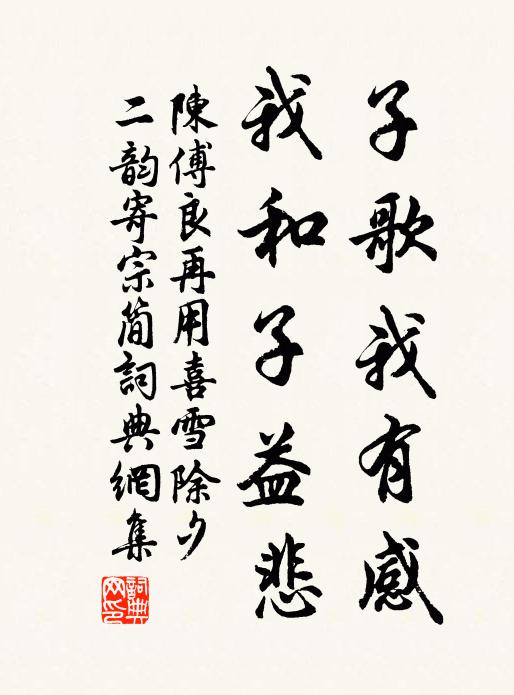 子歌我有感
我和子益悲
陳傅良再用喜雪除夕
二韵寄宗简詞典網集
詞典
网印